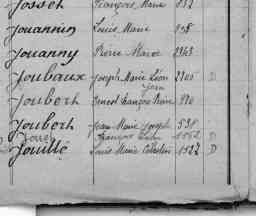 Josset François, Marie 832
Jouannin Louis, Marie 
Jouanny Pierre Marie 2343
Joubaux Joseph Marie Léon 2205 D
Jean
Joubert Ernest François 
Joubert Jean Marie Joseph 538
François 1552 D
Jouillé Louis Marie Célestin 1527 D